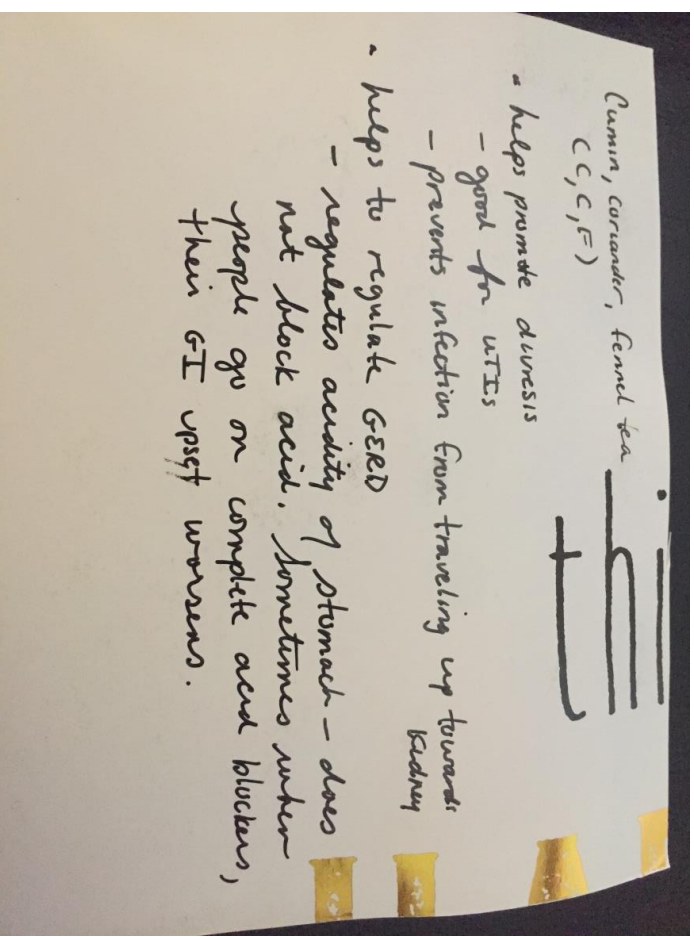 Cumin, coriander, fennel tea
(C, C, F)
• helps promote diuresis
- good for UTIs
- prevents infection from traveling up towards
kidney
• helps to regulate GERD
- regulates acidity of stomach - does
not block acid. Sometimes when
people go on complete acid blockers,
their GI upset worsens.